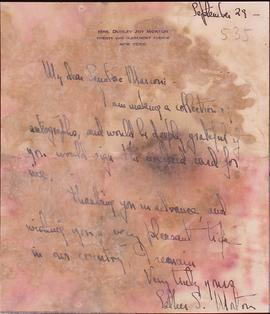 September 29 -
535
MRS. DUDLEY JOY MORTON
NEW YORK
My dear Senatore Marconi -
I am making a collection of
autographs, and would be deeply grateful if
you would sign the enclosed card for
me.
Thanking you in advance and
wishing you a very pleasant time
in our country I remain
Very truly yours
Esther S. Morton